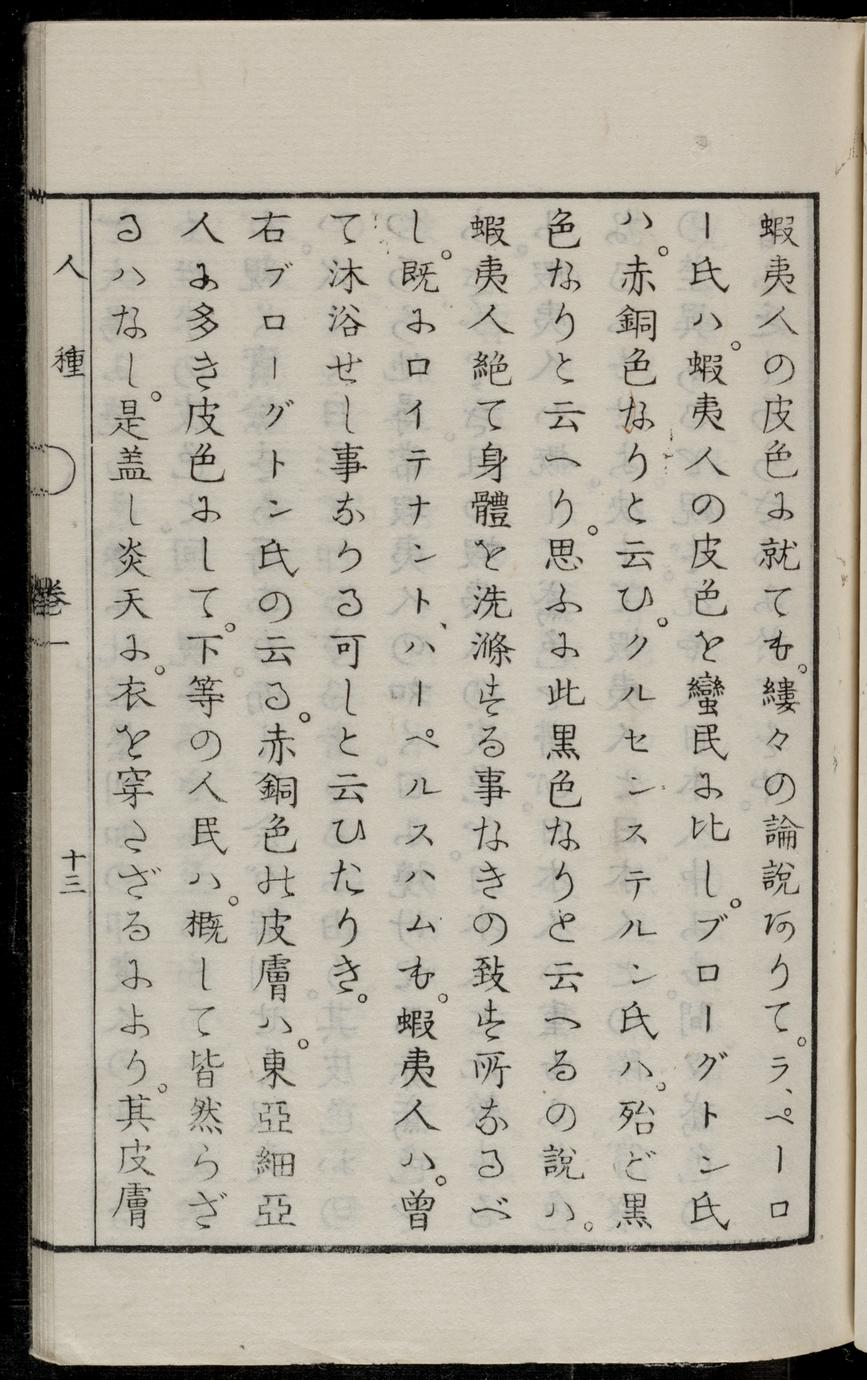 蝦夷人の皮色に就ても。縷々の論説ありて。ラ、ペーロ
ー氏ハ。蝦夷人の皮色を蠻民に比し。ブローグトン氏
ハ。赤銅色なりと云ひ。クルセンステルン氏ハ。殆ど黒
色なりと云へり。思ふに此黒色なりと云へるの説ハ。
蝦夷人絶て身體を洗滌する事なきの致す所なるべ
し。既にロイテナント、ハーペルスハムも。蝦夷人ハ。曾
て沐浴せし事なかる可しと云ひたりき。
右ブローグトン氏の云る。赤銅色の皮膚ハ。東亞細亞
人に多き皮色にして。下等の人民ハ。概して皆然らざ
るハなし。是盖し炎天に。衣を穿さざるにより。其皮膚
人種
卷一
十三